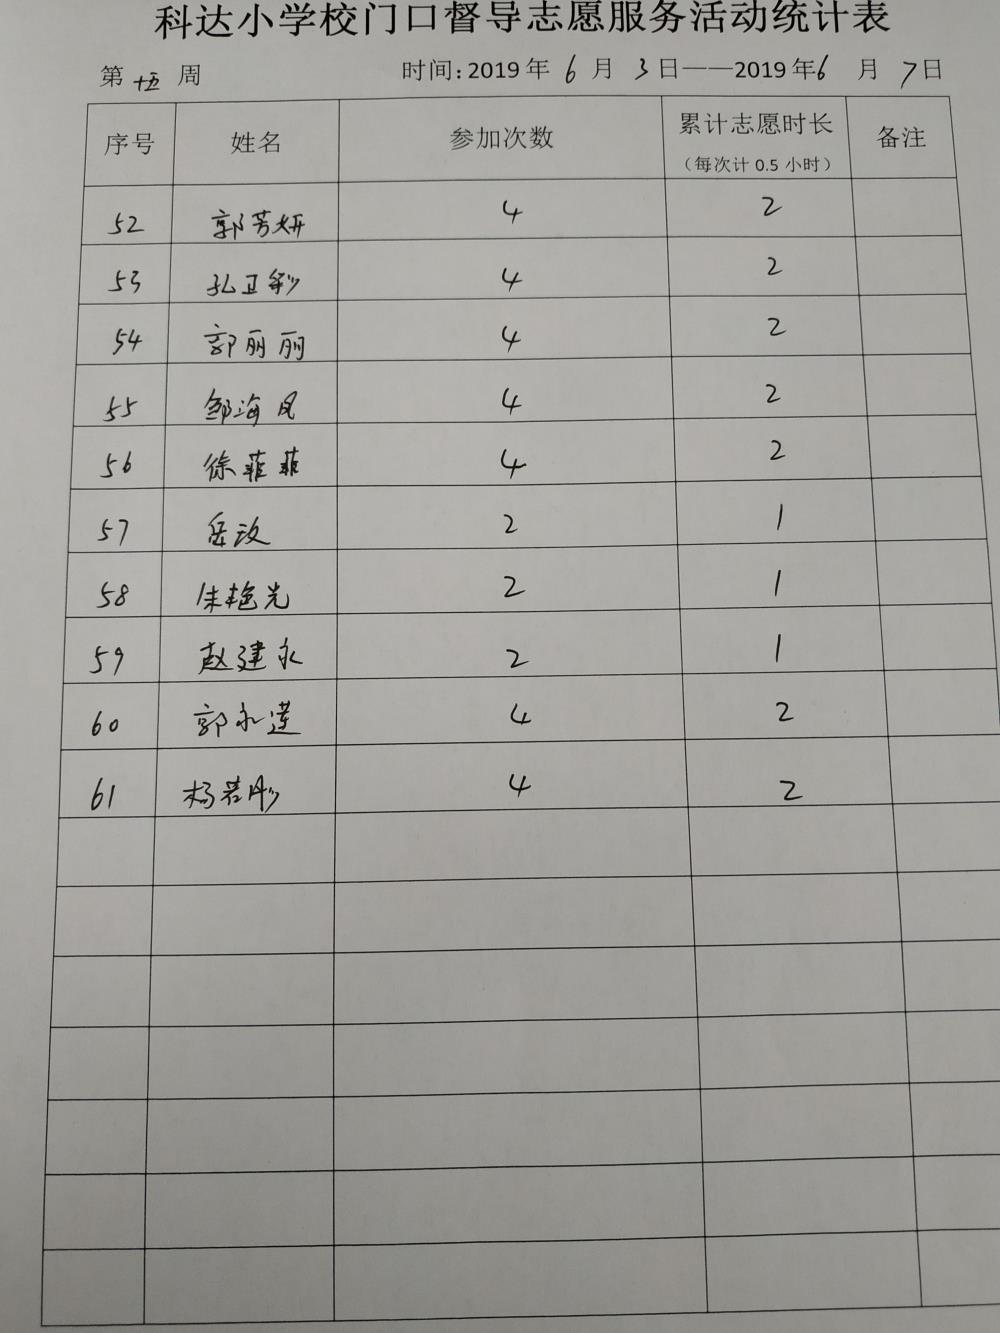 科达小学校门口督导志愿服务活动统计表
第 十五 周 时间: 2019 年 6 月 3 日——2019 年 6 月 7 日
序号 姓名 参加次数 累计志愿时长 备注
（每次计 0.5 小时）
52 郭芳妍 4 2
53 孔卫彩 4 2
54 郭丽丽 4 2
55 邹海风 4 2
56 徐菲菲 4 2
57 岳玫 2 1
58 朱艳光 2 1
59 赵建永 2 1
60 郭永莲 4 2
61 杨若彤 4 2